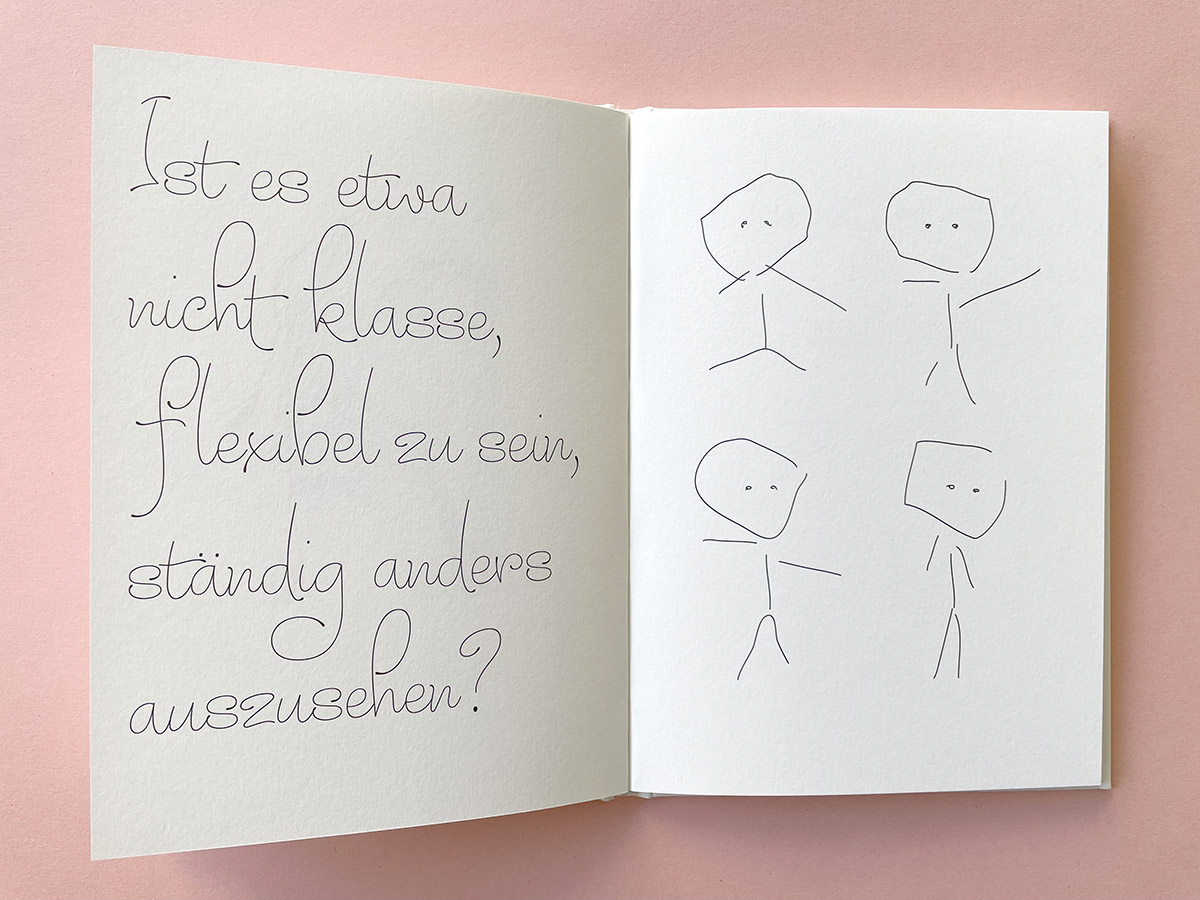 Ist es etwa
nicht klasse,
flexibel zu sein,
ständig anders
auszusehen?